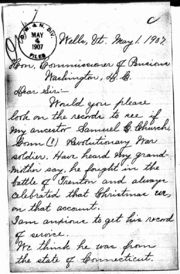 MAY
4
1907
FILED
Wells, Vt. May 1, 1907
Hon. Commissioner of Pensions
Washington, D. C.
Dear Sir:-
Would you please
look on the records to see if
my ancestor Samuel C. Church
Conn (?) Revolutionary War
soldier. Have heard my grand-
mother say, he fought in the
battle of Trenton and always
celebrated that Christmas eve
on that account.
I am anxious to get his record
of service.
We think he was from
the state of Connecticut.